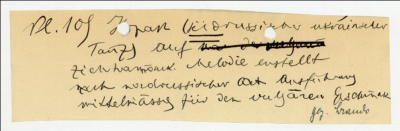 Pl. 109 Hopak kleinrussischer ukrainischer
Tanz auf
Ziehharmonik. Melodie erstellt
nach nordrussischer Art Ausführung
mittelmässig für den vulgären Geschmack
gez.